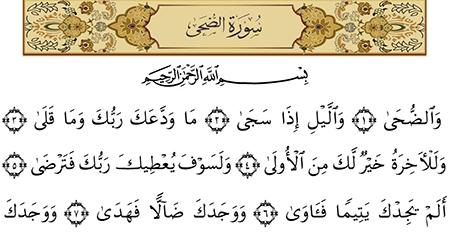 سُورَةُ الضُّحَى
بِسْمِ اللَّهِ الرَّحْمَٰنِ الرَّحِيمِ
وَالضُّحَىٰ ﴿١﴾ وَالَّيْلِ إِذَا سَجَىٰ ﴿٢﴾ مَا وَدَّعَكَ رَبُّكَ وَمَا قَلَىٰ ﴿٣﴾
وَلَلْآخِرَةُ خَيْرٌ لَّكَ مِنَ الْأُولَىٰ ﴿٤﴾ وَلَسَوْفَ يُعْطِيكَ رَبُّكَ فَتَرْضَىٰ ﴿٥﴾
أَلَمْ يَجِدْكَ يَتِيمًا فَـَٔاوَىٰ ﴿٦﴾ وَوَجَدَكَ ضَالًّا فَهَدَىٰ ﴿٧﴾ وَوَجَدَكَ